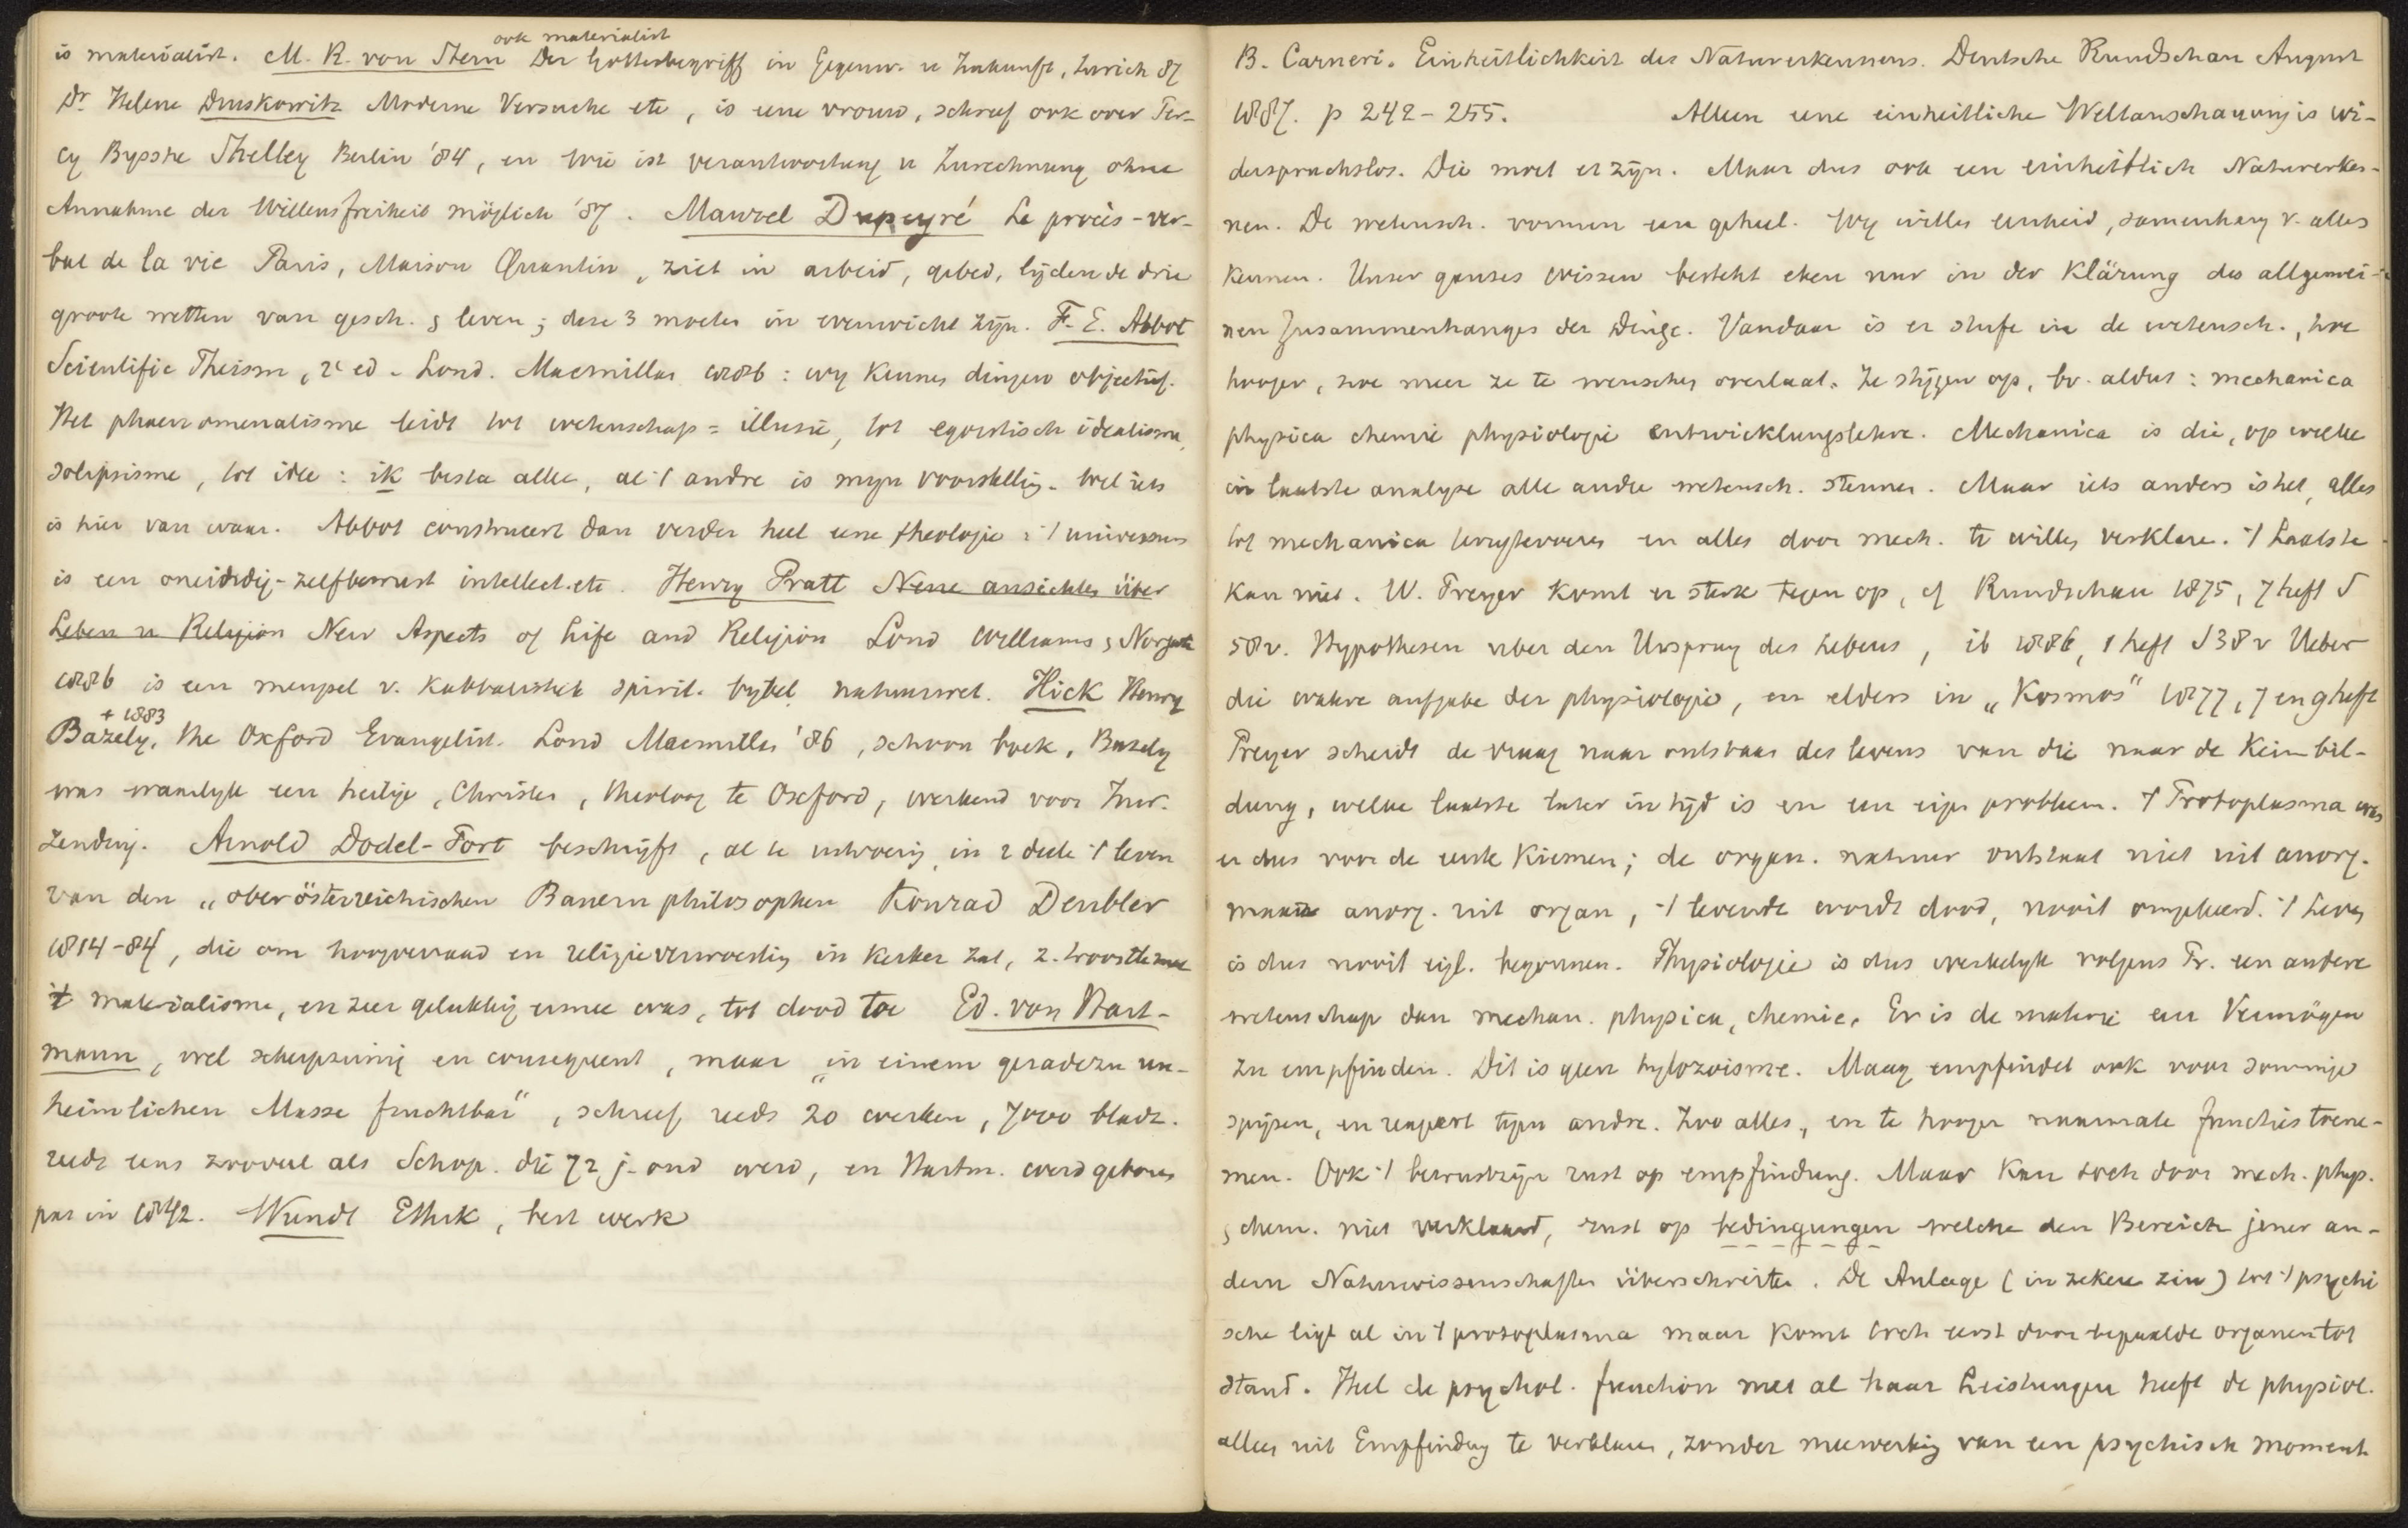 ook materialist
is materialist. M. R. von Stern Der Gottesbegriff in Gegenw. u Zukunft, Zurich 87
Dr Helene Druskowitz Moderne Versuche etc, is eene vrouw, schreef ook over Per-
cy Bysshe Shelley Berlin '84, en wie ist verantwortung u Zurechnung ohne
Annahme der Willensfreiheit möglich '87. Maurel Dupeyré Le procès-ver-
bal de la vie Paris, Maison Quantin, ziet in arbeid, gebed, lijden de drie
groote wetten van gesch. & leven; deze 3 moeten in evenwicht zijn. F. E. Abbot
Scientific Theism, 2e ed. Lond. Macmillan 1886: wij kennen dingen objectief.
Het phaenomenalisme leidt tot wetenschap = illusie, tot egoistisch idealisme,
solipsisme, tot idee: ik besta alleen, al 't andre is mijn voorstelling. Wel iets
is hier van waar. Abbot construeert dan verder heel eene theologie: 't universum
is een oneindig-zelfbewust intellect. etc. Henry Pratt Neue ansichten über
Leben u Religion New Aspects of Life and Religion Lond Williams & Norgate
1886 is een mengsel v. Kabbalistiek spirit. bijbel natuurwet. Hick Henry
+ 1883
Bazely, the Oxford Evangelist. Lond Macmillan '86, schoon boek, Bazely
was waarlijk een heilige, Christen, theoloog te Oxford, werkend voor Inw.
Zending. Arnold Dodel-Port beschrijft, al te uitvoerig, in 2 deelen 't leven
van den „oberösterreichischen Bauernphilosophen Konrad Deubler
1814-84, die om hoogverraad en religieverwoesting in kerker zat, z. troostte met
't materialisme, en zeer gelukkig ermee was, tot dood toe Ed. von Hart-
mann, wel scherpzinnig en consequent, maar „in einem geradezu un-
heimlichen Masse fruchtbar", schreef reeds 20 werken, 7000 bladz.
reeds eens zooveel als Schop. die 72 j. oud werd, en Hartm. werd geboren
pas in 1842. Wundt Ethik, best werk
B. Carneri. Einheitlichkeit des Naturerkennens. Deutsche Rundschau August
1887. p 242-255. Alleen eene einheitliche Weltanschauung is wi-
derspruchslos. Die moet er zijn. Maar dus ook een einheitlich Naturerken-
nen. De wetensch. vormen een geheel. Wij willen eenheid, samenhang v. alles
kennen. Unser ganzes wissen besteht eben nur in der Klärung des allgemei-
nen Zusammenhanges der Dinge. Vandaar is er stufe in de wetensch., hoe
hooger, hoe meer ze te wenschen overlaat. Ze stijgen op, bv. aldus: mechanica
physica chemie physiologie entwicklungslehre. Mechanica is die, op welke
in laatste analyse alle andre wetensch. steunen. Maar iets anders is het, alles
tot mechanica terugtevoeren en alles door mech. te willen verklaren. 't Laatste
kan niet. W. Preyer komt er sterk tegen op, cf Rundschau 1875, 7 heft S
58v. Hypothesen uber den Ursprung des Lebens, ib 1886, 1 heft S 38 v Ueber
die wahre aufgabe der physiologie, en elders in „Kosmos" 1877, 7 en 9 heft
Preyer scheidt de vraag naar ontstaan des levens van die naar de Keimbil-
dung, welke laatste later in tijd is en een eigen probleem. 't Protoplasma was
er dus voor de eerste kiemen; de organ. natuur ontstaat niet uit anorg.
maar anorg. uit organ, 't levende wordt dood, nooit omgekeerd. 't Leven
is dus nooit eigl. begonnen. Physiologie is dus werkelijk volgens Pr. een andere
wetenschap dan mechan. physica, chemie. Er is de materie een Vermögen
zu empfinden. Dit is geen hylozoisme. Maag empfindet ook voor sommige
spijzen, en reageert tegen andre. Zoo alles, en te hooger naarmate functies toene-
men. Ook 't bewustzijn rust op empfindung. Maar kan toch door mech. phys.
& chem. niet verklaard, rust op bedingungen welche den Bereich jener an-
dern Naturwissenschaften überschreiten. De Anlage (in zekeren zin) tot 't psychi
sche ligt al in 't protoplasma maar komt toch eerst door bepaalde organen tot
stand. Heel de psychol. function met al haar Leistungen heeft de physiol.
alleen uit Empfindung te verklaren, zonder meewerking van een psychisch moment